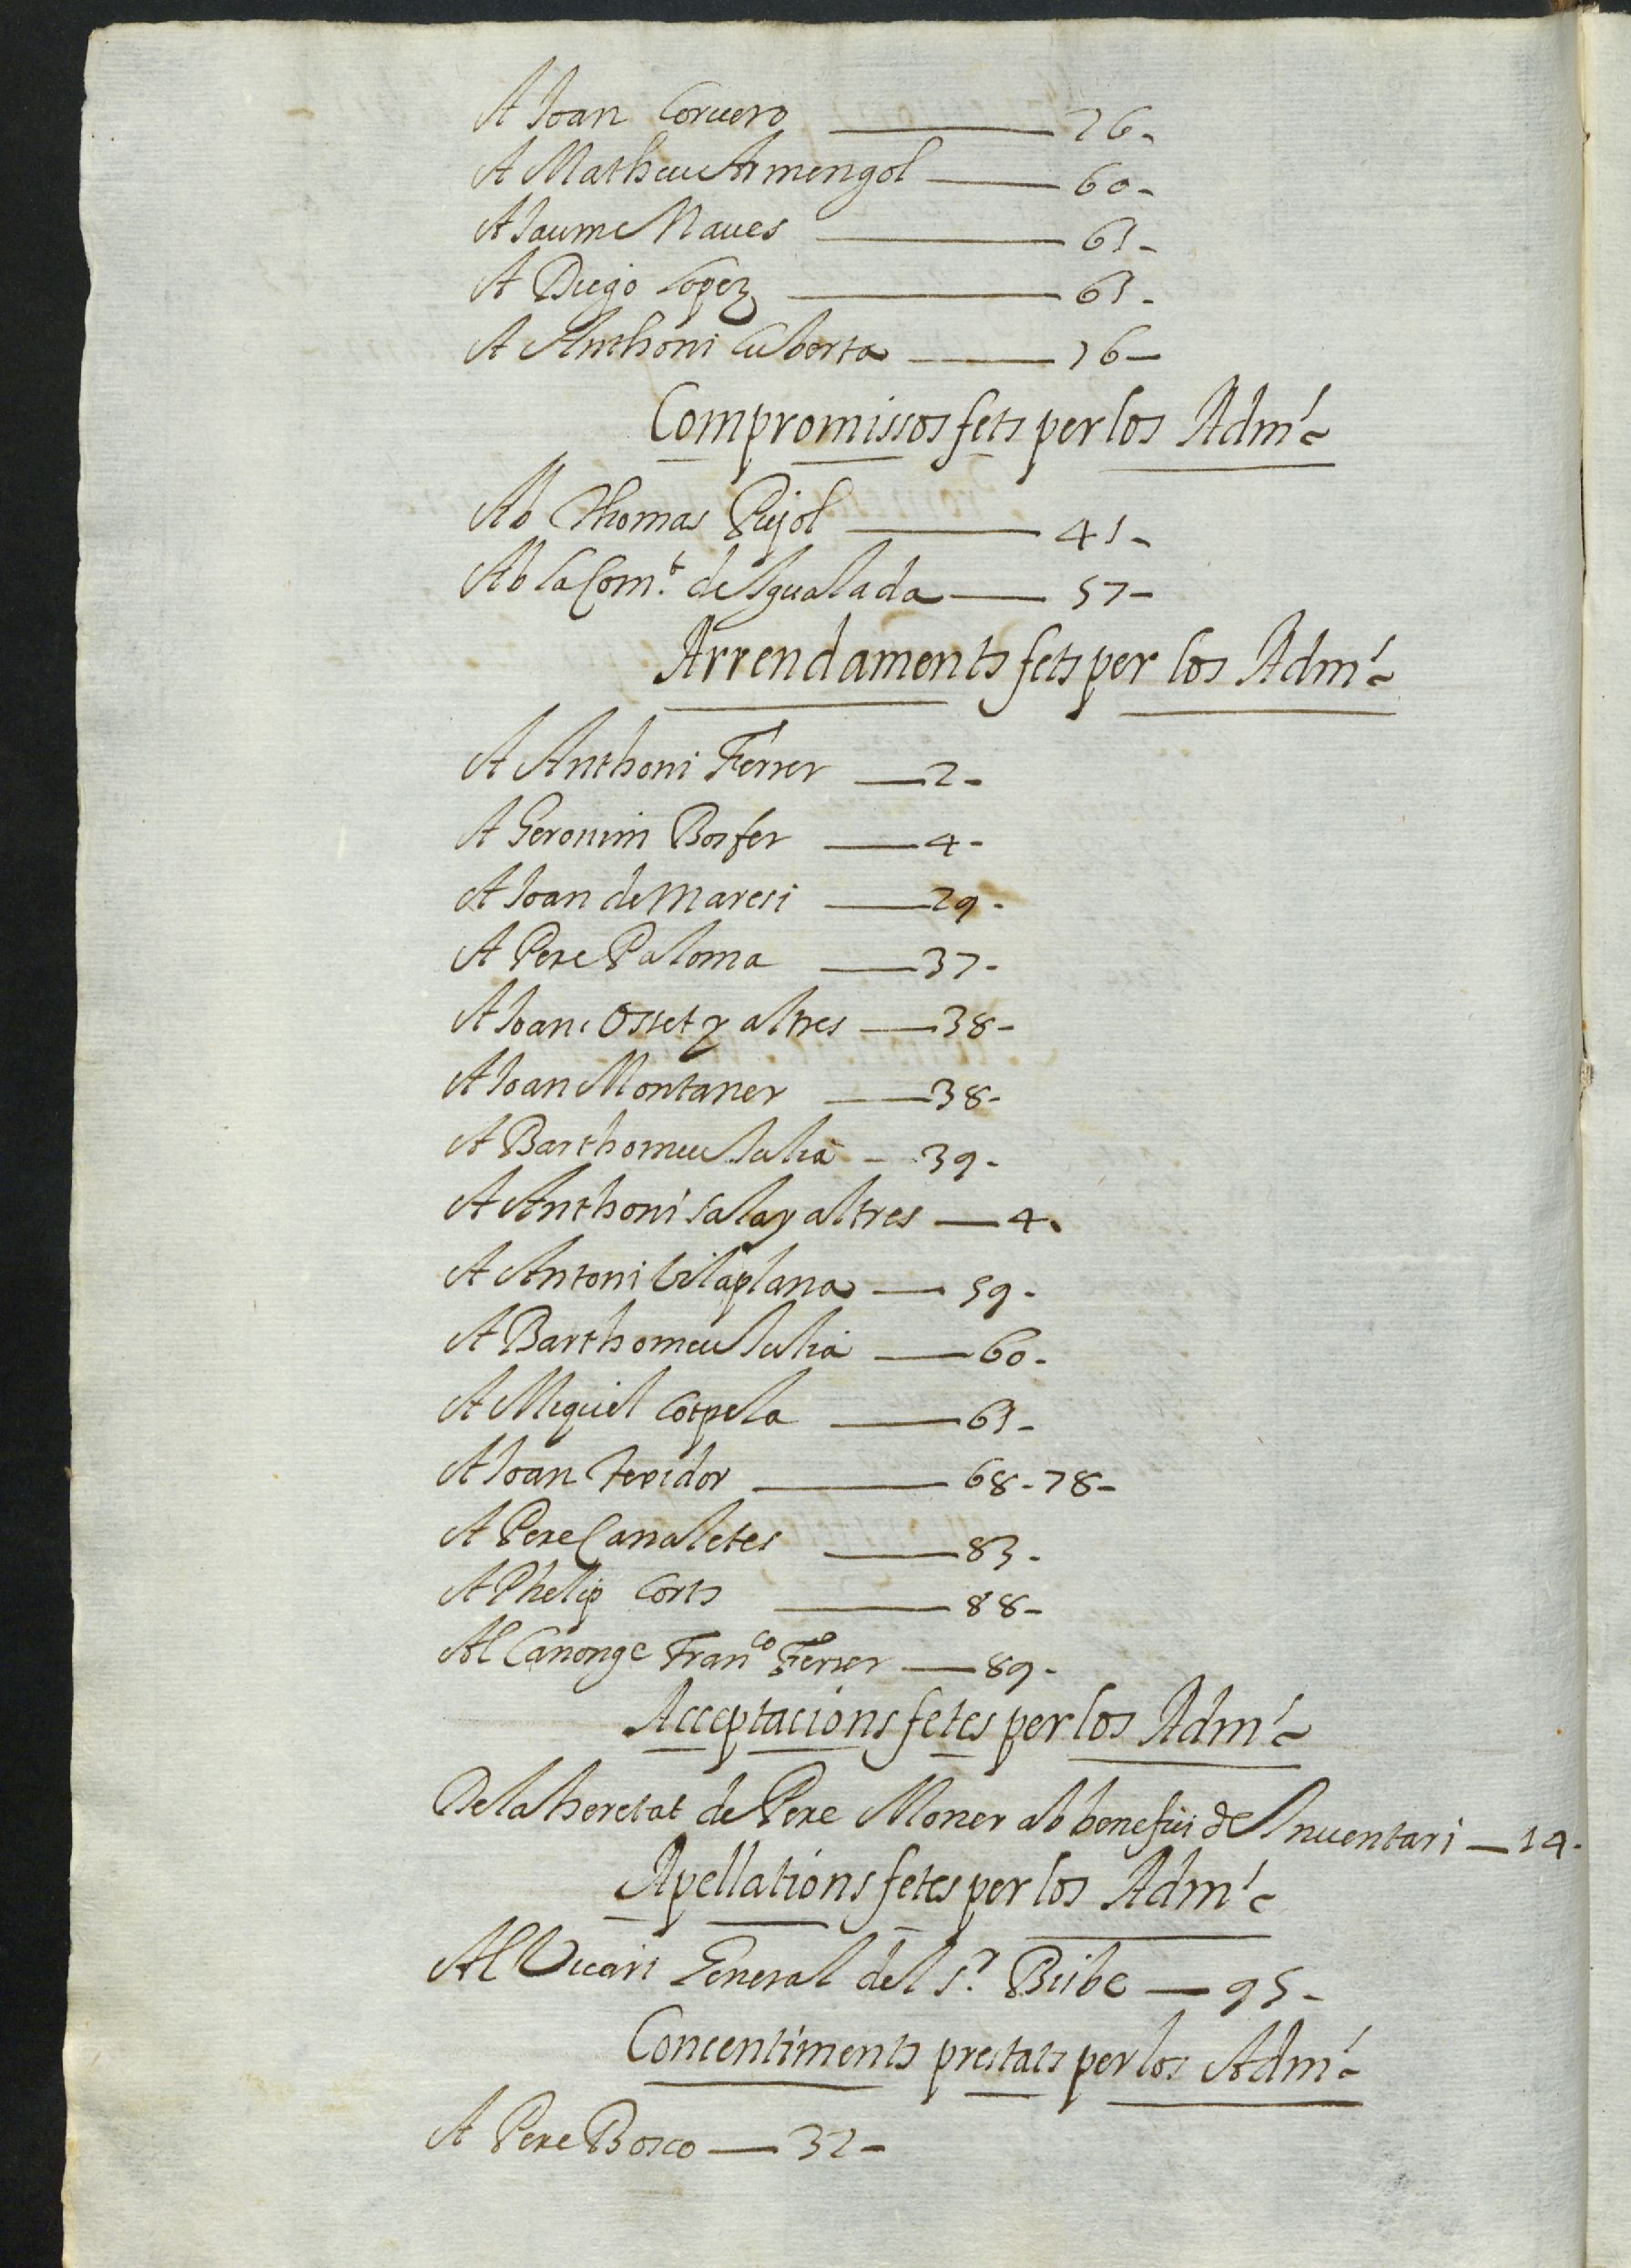 A Joan Corvero — 26 -
A Matheu Armengol — 60 -
A Jaume Naues — 61 -
A Diego Lopez — 61 -
A Anthoni Cuberta — 76 -
Compromissos fets per los Adm.^s
Ab Thomas Pujol — 41 -
Ab la Com.^t de Igualada — 57 -
Arrendaments fets per los Adm.^s
A Anthoni Ferrer — 2 -
A Geronim Bosfer — 4 -
A Joan de Maresi — 29 -
A Pere Paloma — 37 -
A Joan Osset y altres — 38 -
A Joan Montaner — 38 -
A Barthomeu Julia — 39 -
A Anthoni Sala y altres — 4.
A Antoni Vilaplana — 59 -
A Barthomeu Julia — 60 -
A Miquel Cospela — 61 -
A Joan Texidor — 68 - 78 -
A Pere Canaletes — 83 -
A Phelip Corts — 88 -
Al Canonge Fran^co Ferrer — 89 -
Acceptacions fetes per los Adm.^s
De la heretat de Pere Moner ab benefici de Inuentari — 14 -
Apellations fetes per los Adm.^s
Al Vicari General del S.^r Bisbe — 95 -
Concentiments prestats per los Adm.^s
A Pere Bosco — 32 -